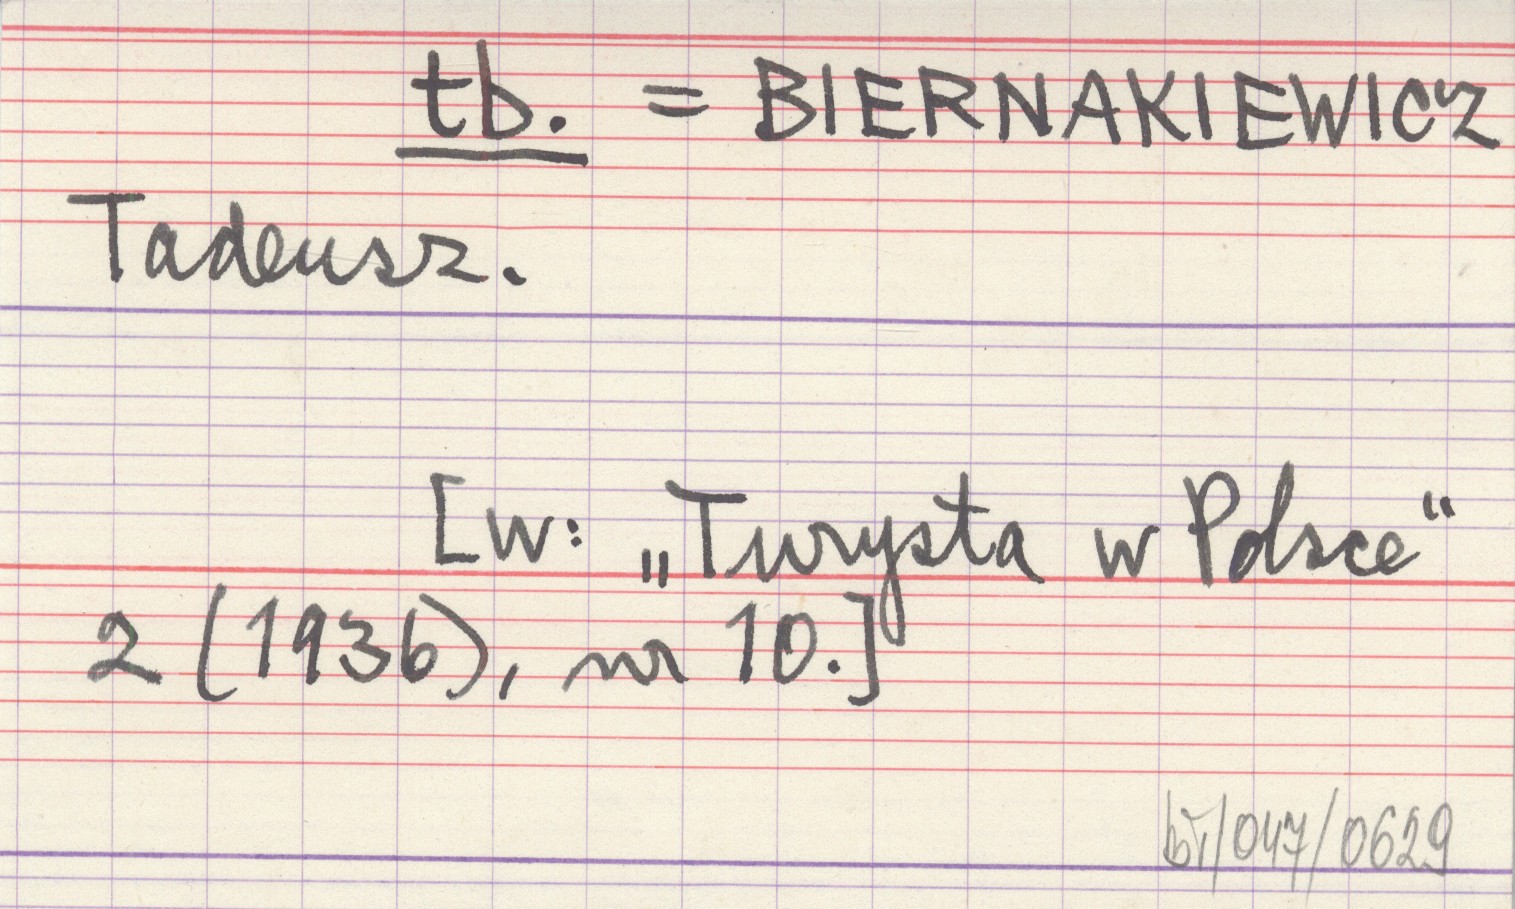 tb. = BIERNAKIEWICZ
Tadeusz.
[w: „Turysta w Polsce“
2 (1936), nr 10.]
/047/0629